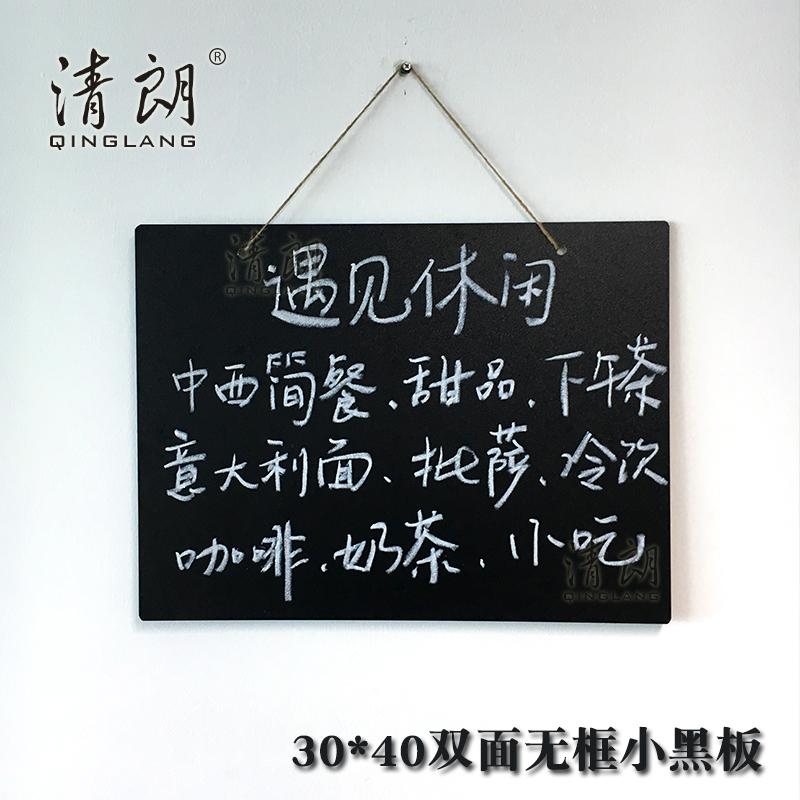 清朗®
QINGLANG
清朗
QINGLANG
遇见休闲
中西简餐、甜品、下午茶
意大利面、批萨、冷饮
咖啡、奶茶、小吃
清朗
QINGLANG
30*40双面无框小黑板